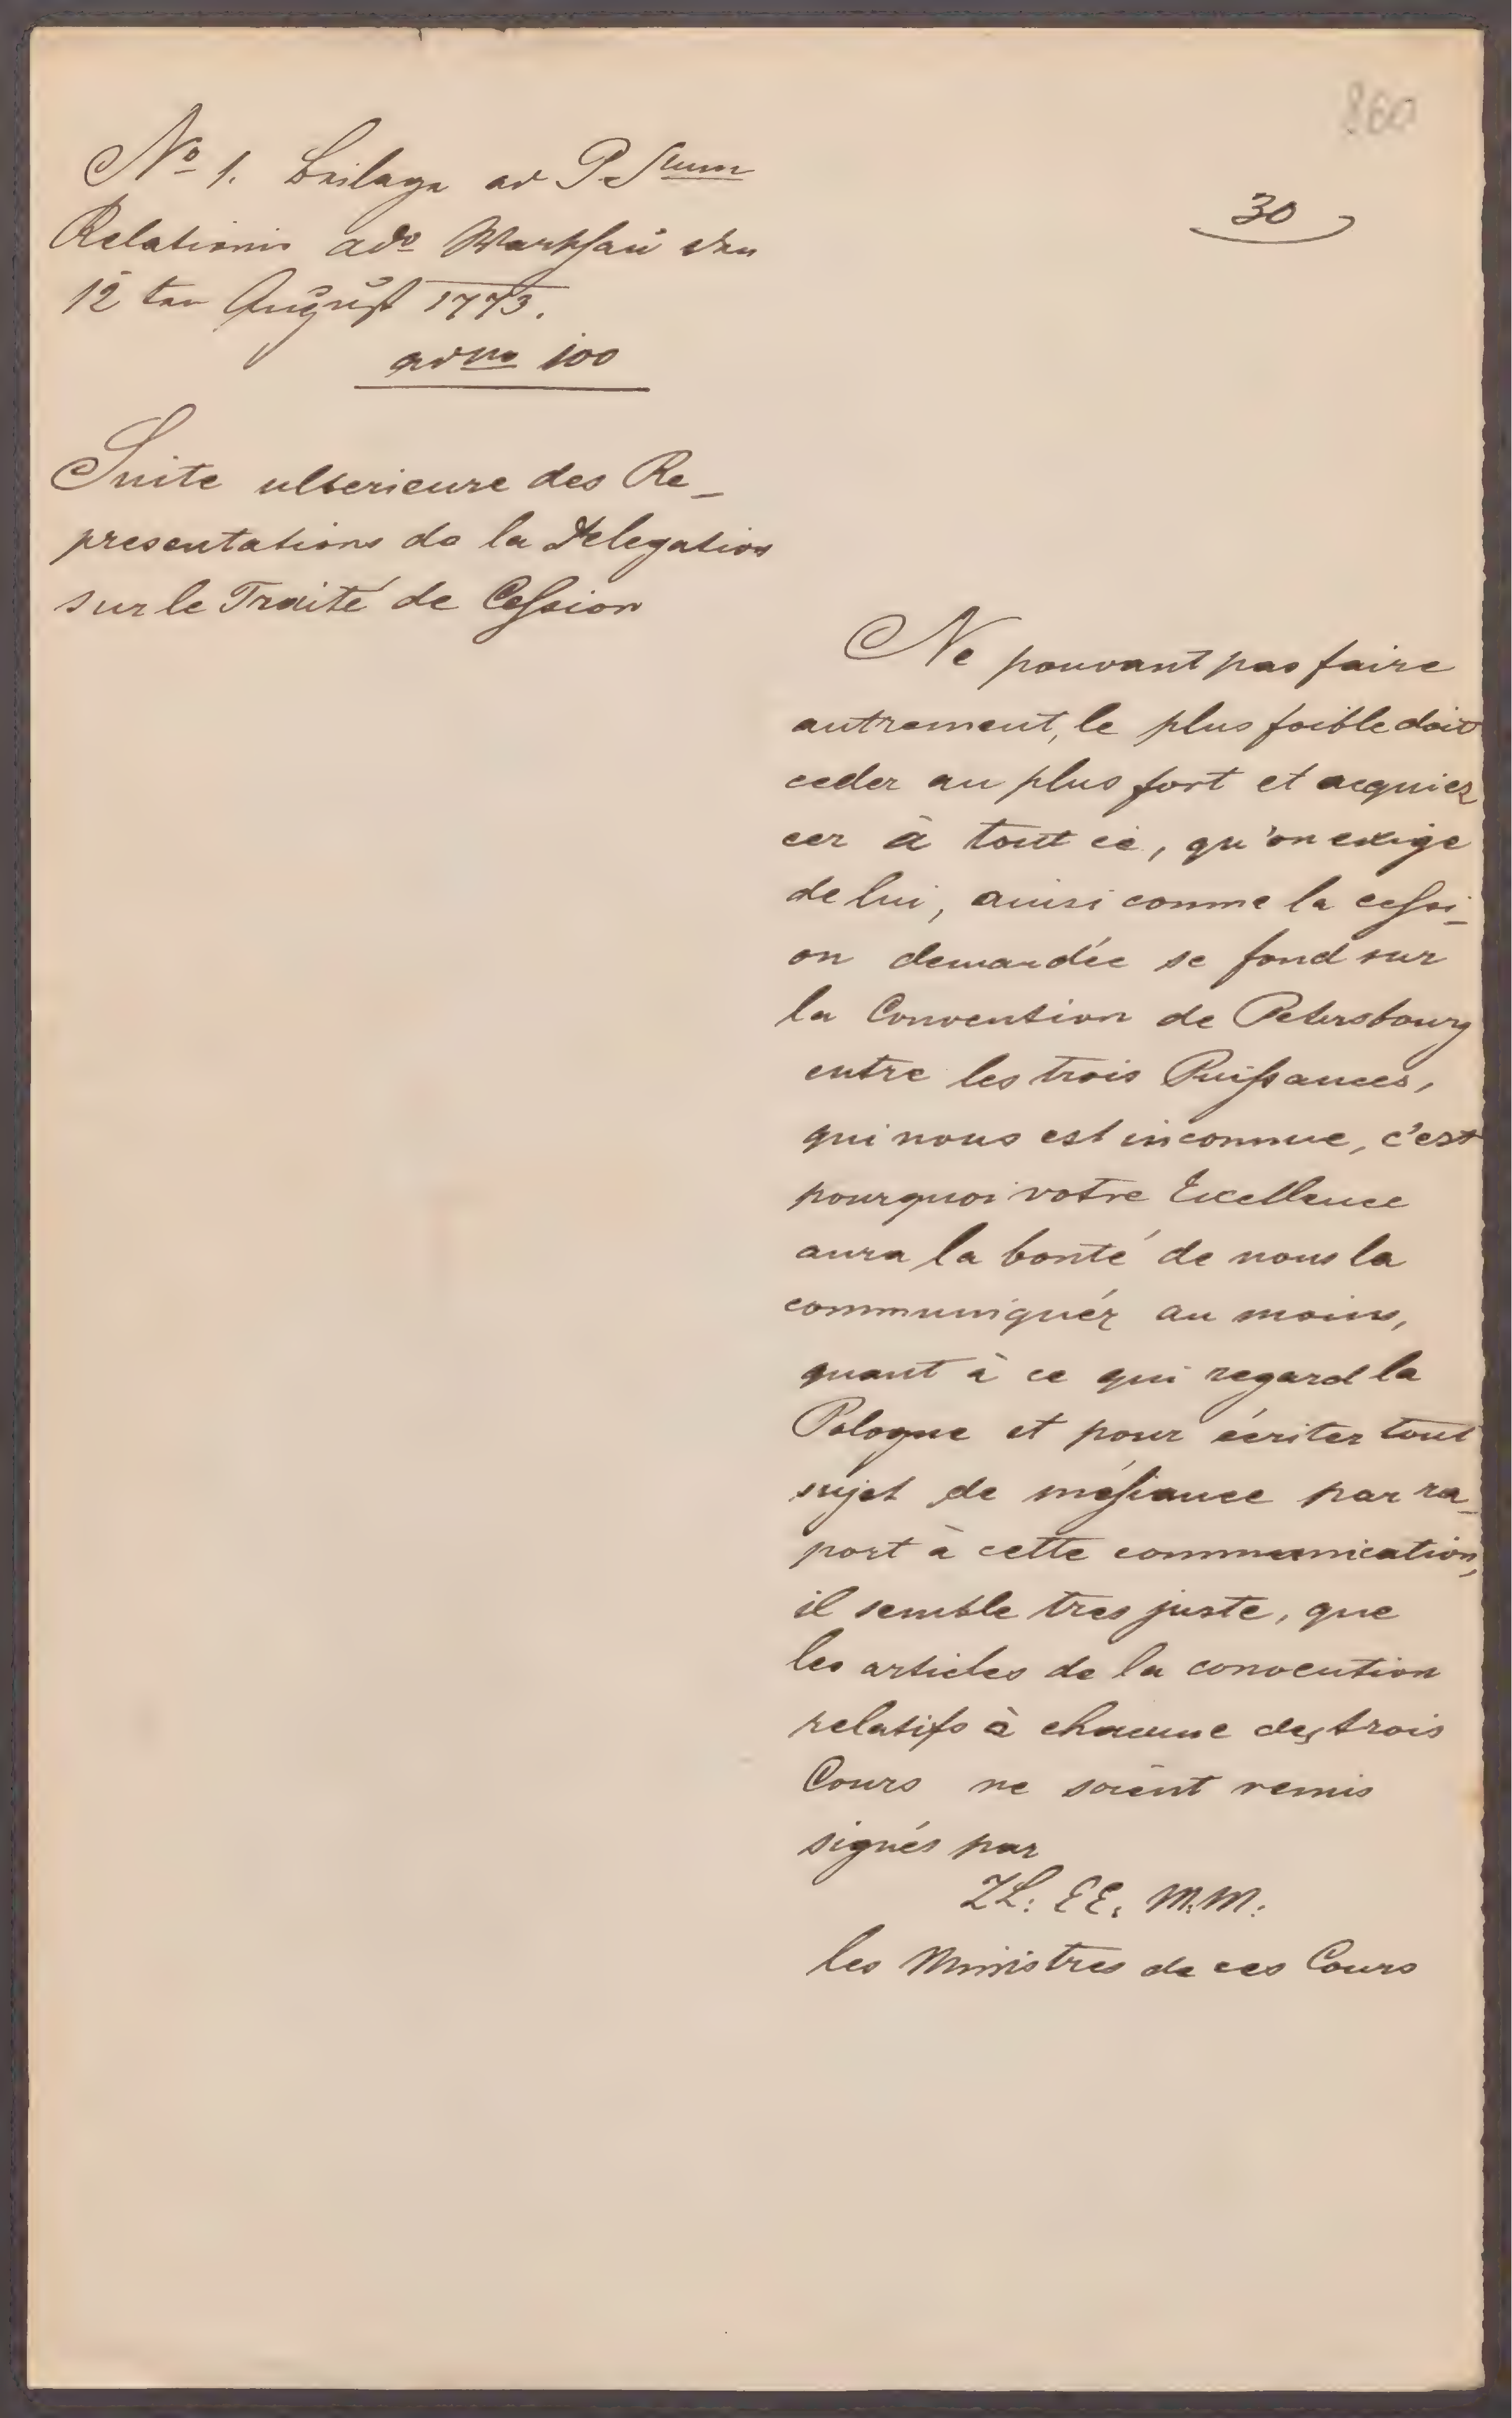 860
30
No 1. Beilage ad P.S.um
Relationis ado Warschau den
12 ten August 1773.
adno 100
Suite ulterieure des Re_
presentations de la Delegation
sur le Traité de Cession
Ne pouvant pas faire
autrement, le plus foible doit
ceder au plus fort et acquies
cer à tout ce, qu'on exige
de lui, ainsi comme la cessi_
on demandée se fond sur
la Convention de Petersbourg
entre les trois Puissances,
qui nous est inconnue, c'est
pourquoi votre Excellence
aura la bonté de nous la
communiquér au moins,
quant à ce qui regard la
Pologne et pour écriter tout
sujet de mésiance par ra_
port à cette communication,
il semble tres juste, que
les articles de la convention
relatifs à chacune des trois
Cours ne soient remis
signés par
LL: EE. M.M:
les Ministres de ces Cours